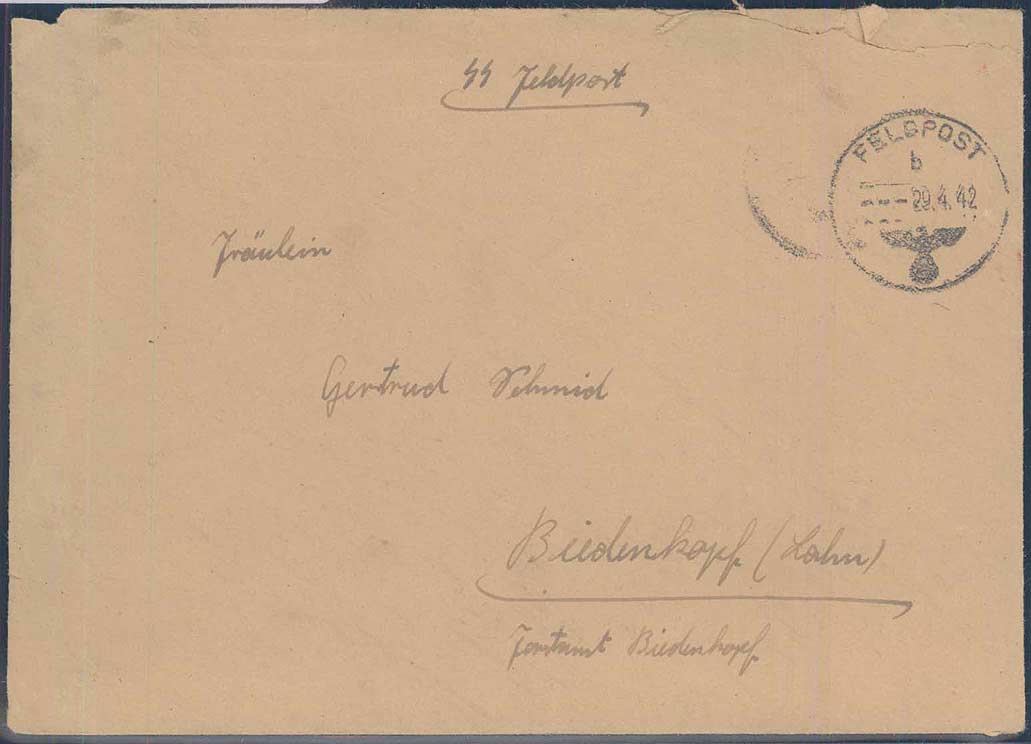 SS Feldpost
FELDPOST
b
29.4.42
Fräulein
Gertrud Schmid
Biedenkopf (Lahn)
Forstamt Biedenkopf